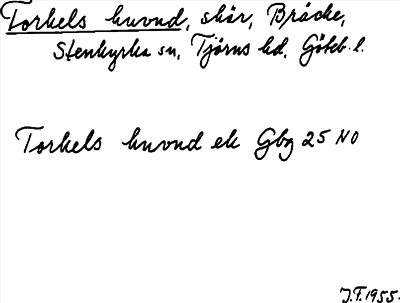 Torkels huvud, skär, Bräcke,
Stenkyrka sn, Tjörns hd, Göteb. l.
Torkels huvud ek Gbg 25 NO
J.F. 1955.